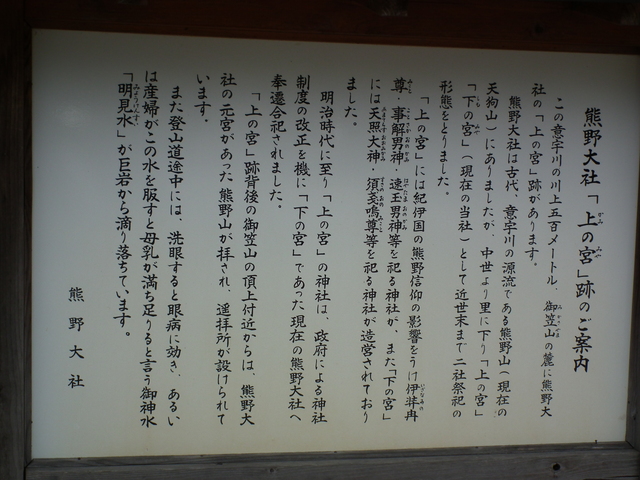 熊野大社「上の宮」跡のご案内
この意宇川の川上五百メートル、御笠山の麓に熊野大
社の「上の宮」跡があります。
熊野大社は古代、意宇川の源流である熊野山(現在の
天狗山)にありましたが、中世より里に下り「上の宮」
「下の宮」(現在の当社)として近世末まで二社祭祀の
形態をとりました。
「上の宮」には紀伊国の熊野信仰の影響をうけ伊弉冉
尊・事解男神・速玉男神等を祀る神社が、また「下の宮」
には天照大神・須戔嗚尊等を祀る神社が造営されており
ました。
明治時代に至り「上の宮」の神社は、政府による神社
制度の改正を機に「下の宮」であった現在の熊野大社へ
奉遷合祀されました。
「上の宮」跡背後の御笠山の頂上付近からは、熊野大
社の元宮があった熊野山が拝され、遥拝所が設けられて
います。
また登山道途中には、洗眼すると眼病に効き、あるい
は産婦がこの水を服すと母乳が満ち足りると言う御神水
「明見水」が巨岩から滴り落ちています。
熊野大社